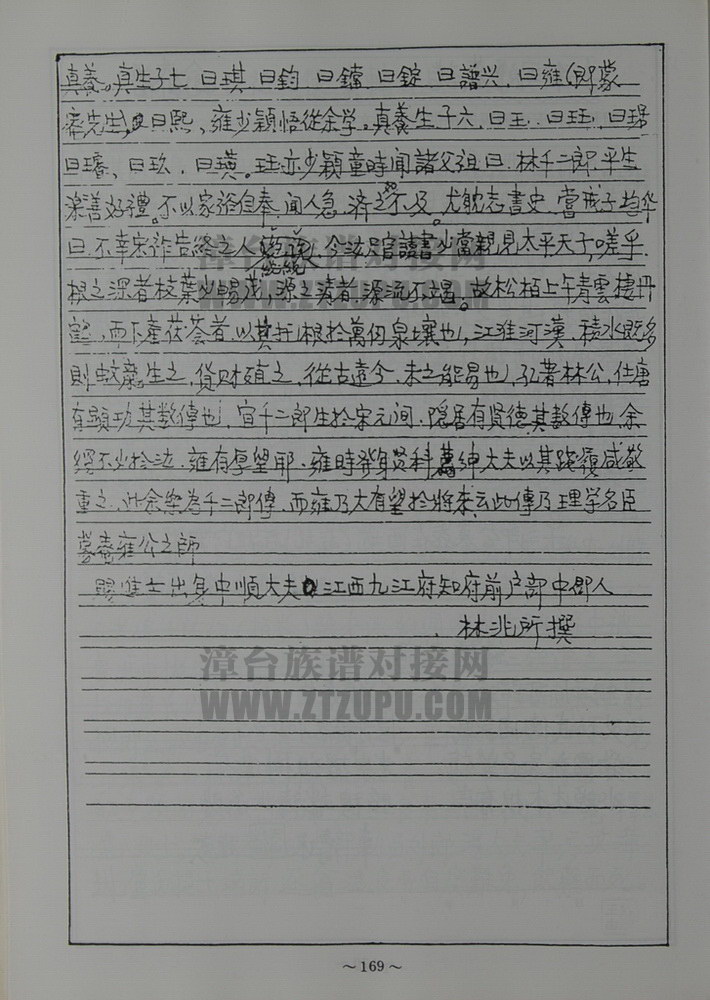 真養。真生子七、曰琪 曰鈞 曰鏞 曰錠 曰譜兴、曰雍(即蒙
庵先生)曰熙、雍少穎悟從余学。真養生子六、曰玉、曰珏、曰瑒
曰璿、曰玖、曰瑛。珏亦少穎童時聞諸父祖曰、林千二郎、平生
楽善好禮。不以家裕自奉、聞人急、濟之恐不及、尤耽志書史、嘗戒子均華
曰、不幸宋祚告終之人 今汝 讀書少當親見太平天子、嗟乎
根之深者枝葉必暢茂、源之 者、源流不竭。故松栢上午青雲棲丹
而下產茯苓者、以其托根於萬仞泉壤也、江淮河漢、積水既多
則蛟龍生之、貨财殖之、從古迄今、未之能易也、弘著林公、仕唐
有顯功其数傳也、宜千二郎生於宋元间、隱居有賢德其数傳也、余
得不少於汝、雍有厚望耶、雍時發身贤科 紳大夫以其踐履咸敬
重之、此余 為千二郎傳、而雍乃大有望於將來云此傳乃理学名臣
蒙菴雍公之師
賜進士出身中順大夫 江西九江府知府前户部中郎人
林兆所撰
漳台族谱对接网
WWW.ZTZUPU.COM
漳台族谱对接网
WWW.ZTZUPU.COM
～169～